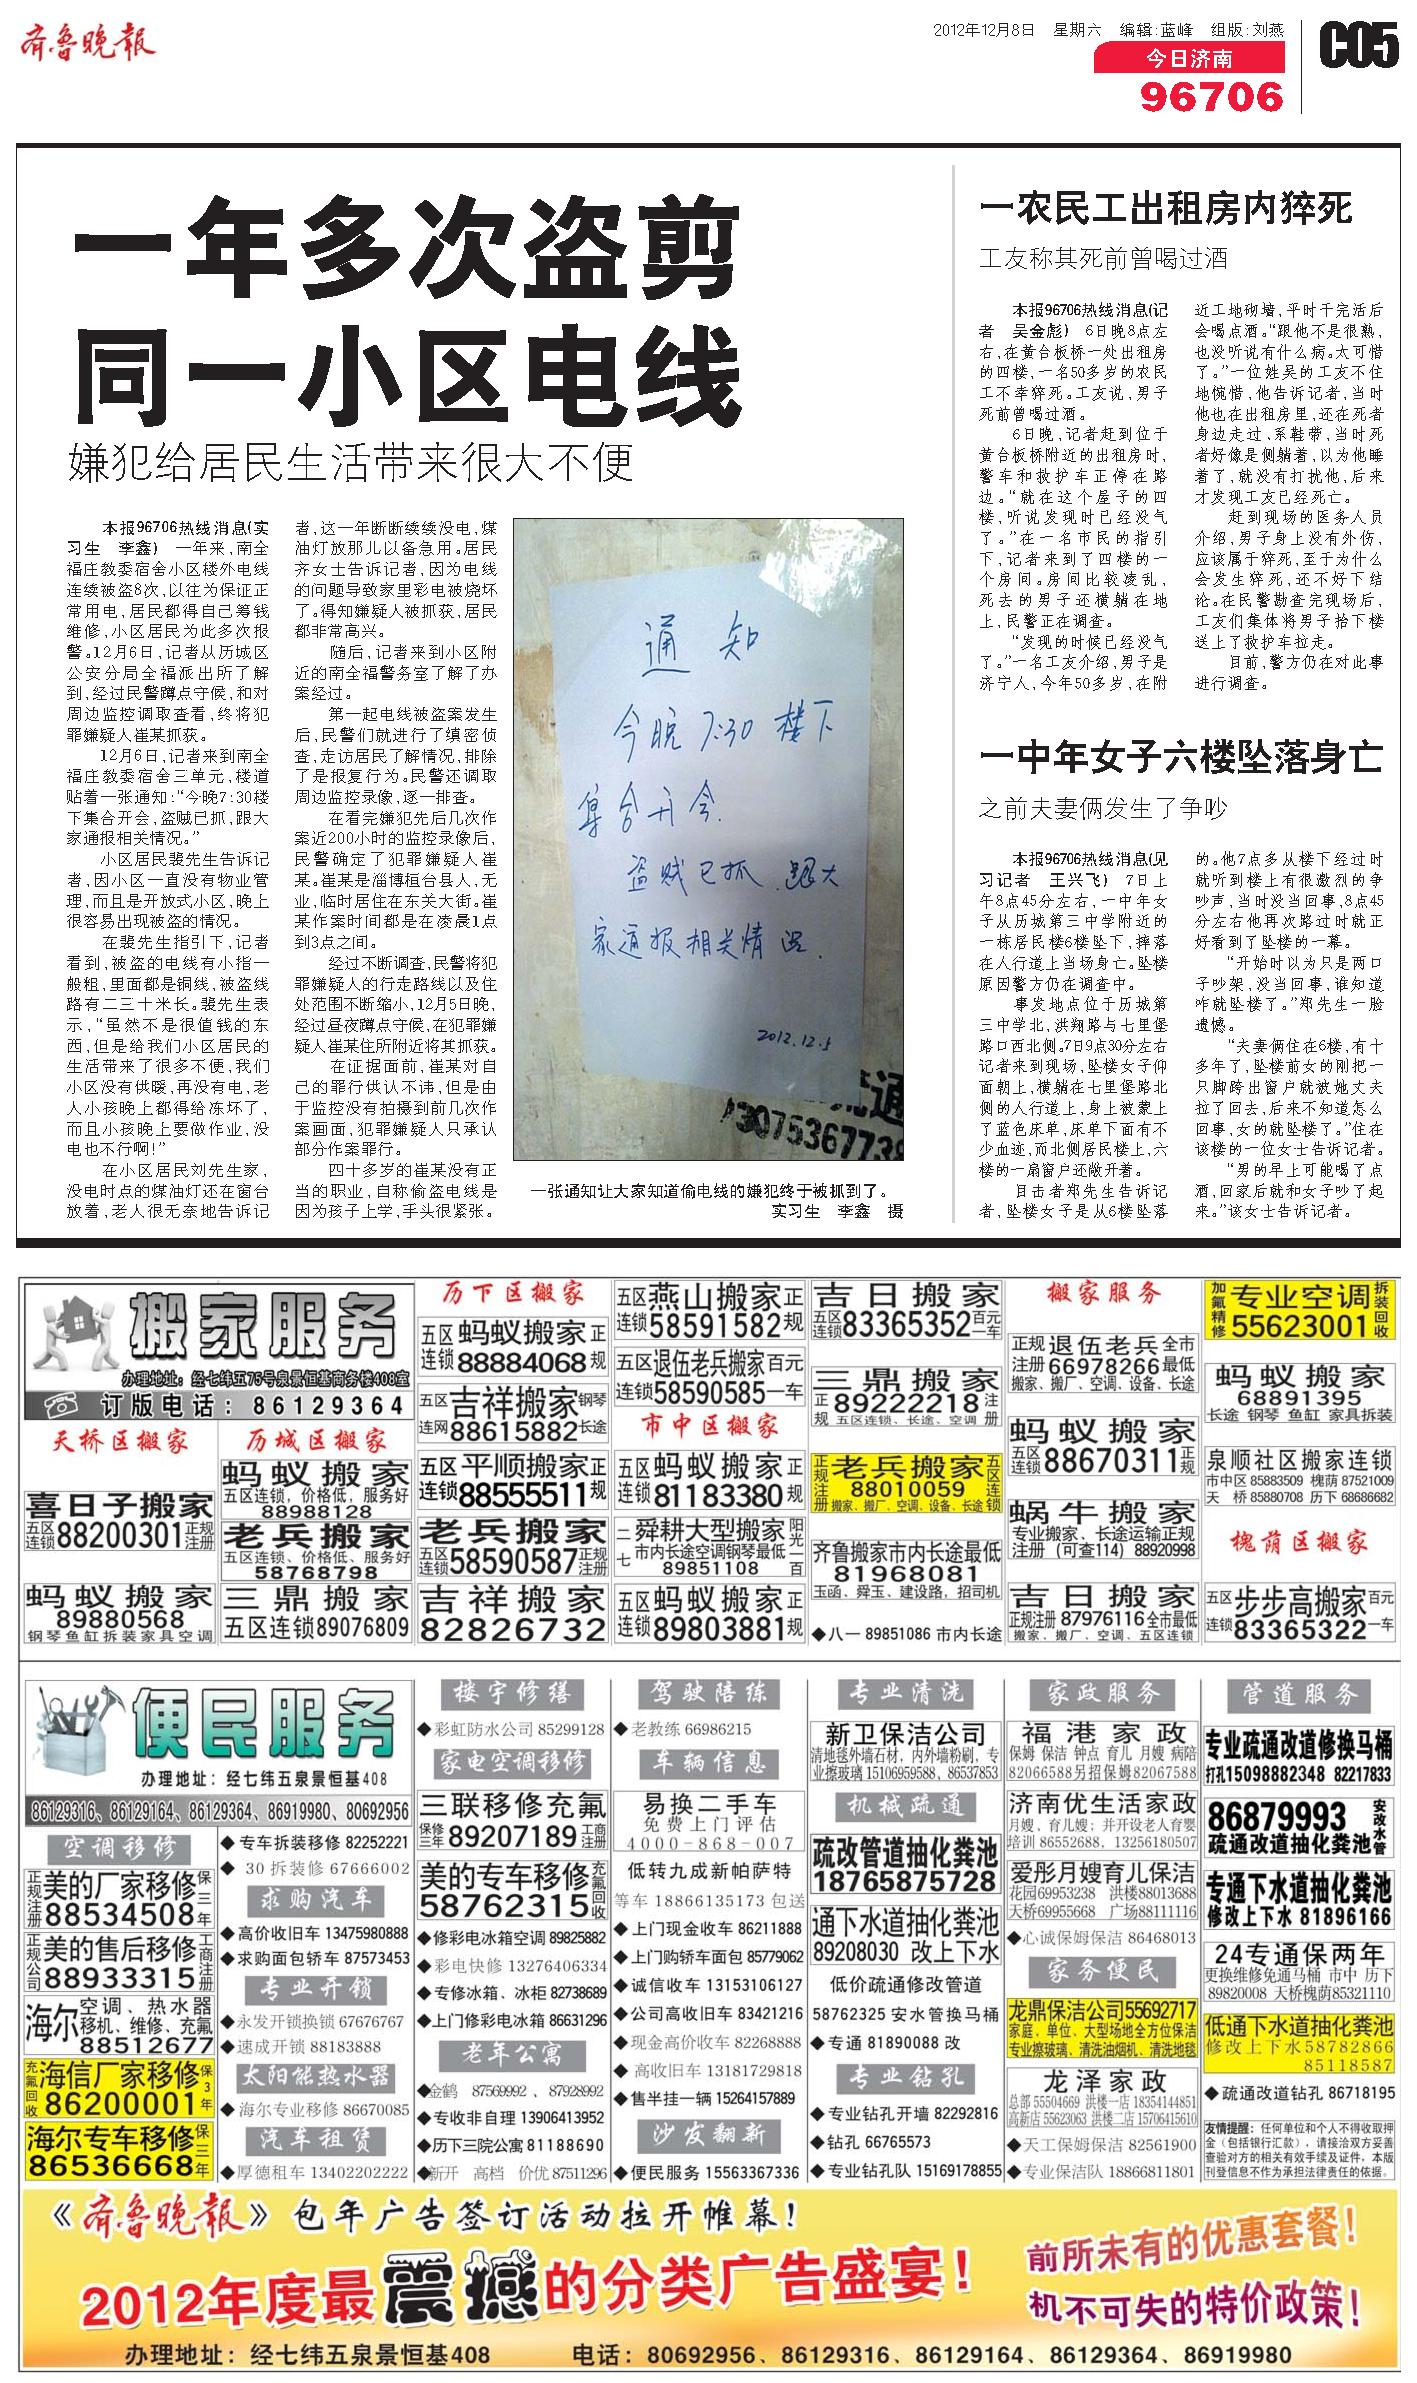 齐鲁晚报
2012年12月8日 星期六 编辑:蓝峰 组版:刘燕
今日济南
96706
C05
一年多次盗剪
同一小区电线
嫌犯给居民生活带来很大不便
本报96706热线消息(实
习生 李鑫) 一年来,南全
福庄教委宿舍小区楼外电线
连续被盗8次,以往为保证正
常用电,居民都得自己筹钱
维修,小区居民为此多次报
警。12月6日,记者从历城区
公安分局全福派出所了解
到,经过民警蹲点守候,和对
周边监控调取查看,终将犯
罪嫌疑人崔某抓获。
12月6日,记者来到南全
福庄教委宿舍三单元,楼道
贴着一张通知:“今晚7:30楼
下集合开会,盗贼已抓,跟大
家通报相关情况。”
小区居民裴先生告诉记
者,因小区一直没有物业管
理,而且是开放式小区,晚上
很容易出现被盗的情况。
在裴先生指引下,记者
看到,被盗的电线有小指一
般粗,里面都是铜线,被盗线
路有二三十米长。裴先生表
示,“虽然不是很值钱的东
西,但是给我们小区居民的
生活带来了很多不便,我们
小区没有供暖,再没有电,老
人小孩晚上都得给冻坏了,
而且小孩晚上要做作业,没
电也不行啊!”
在小区居民刘先生家,
没电时点的煤油灯还在窗台
放着,老人很无奈地告诉记
者,这一年断断续续没电,煤
油灯放那儿以备急用。居民
齐女士告诉记者,因为电线
的问题导致家里彩电被烧坏
了。得知嫌疑人被抓获,居民
都非常高兴。
随后,记者来到小区附
近的南全福警务室了解了办
案经过。
第一起电线被盗案发生
后,民警们就进行了缜密侦
查,走访居民了解情况,排除
了是报复行为。民警还调取
周边监控录像,逐一排查。
在看完嫌犯先后几次作
案近200小时的监控录像后,
民警确定了犯罪嫌疑人崔
某。崔某是淄博桓台县人,无
业,临时居住在东关大街。崔
某作案时间都是在凌晨1点
到3点之间。
经过不断调查,民警将犯
罪嫌疑人的行走路线以及住
处范围不断缩小,12月5日晚,
经过昼夜蹲点守候,在犯罪嫌
疑人崔某住所附近将其抓获。
在证据面前,崔某对自
己的罪行供认不讳,但是由
于监控没有拍摄到前几次作
案画面,犯罪嫌疑人只承认
部分作案罪行。
四十多岁的崔某没有正
当的职业,自称偷盗电线是
因为孩子上学,手头很紧张。
通知
今晚7:30楼下
集合开会.
盗贼已抓.跟大
家通报相关情况.
2012.12.5
通
13075367739
一张通知让大家知道偷电线的嫌犯终于被抓到了。
实习生 李鑫 摄
一农民工出租房内猝死
工友称其死前曾喝过酒
本报96706热线消息(记
者 吴金彪) 6日晚8点左
右,在黄台板桥一处出租房
的四楼,一名50多岁的农民
工不幸猝死。工友说,男子
死前曾喝过酒。
6日晚,记者赶到位于
黄台板桥附近的出租房时,
警车和救护车正停在路
边。“就在这个屋子的四
楼,听说发现时已经没气
了。”在一名市民的指引
下,记者来到了四楼的一
个房间。房间比较凌乱,
死去的男子还横躺在地
上,民警正在调查。
“发现的时候已经没气
了。”一名工友介绍,男子是
济宁人,今年50多岁,在附
近工地砌墙,平时干完活后
会喝点酒。“跟他不是很熟,
也没听说有什么病。太可惜
了。”一位姓吴的工友不住
地惋惜,他告诉记者,当时
他也在出租房里,还在死者
身边走过、系鞋带,当时死
者好像是侧躺着,以为他睡
着了,就没有打扰他,后来
才发现工友已经死亡。
赶到现场的医务人员
介绍,男子身上没有外伤,
应该属于猝死,至于为什么
会发生猝死,还不好下结
论。在民警勘查完现场后,
工友们集体将男子抬下楼
送上了救护车拉走。
目前,警方仍在对此事
进行调查。
一中年女子六楼坠落身亡
之前夫妻俩发生了争吵
本报96706热线消息(见
习记者 王兴飞) 7日上
午8点45分左右,一中年女
子从历城第三中学附近的
一栋居民楼6楼坠下,摔落
在人行道上当场身亡。坠楼
原因警方仍在调查中。
事发地点位于历城第
三中学北,洪翔路与七里堡
路口西北侧。7日9点30分左右
记者来到现场,坠楼女子仰
面朝上,横躺在七里堡路北
侧的人行道上,身上被蒙上
了蓝色床单,床单下面有不
少血迹,而北侧居民楼上,六
楼的一扇窗户还敞开着。
目击者郑先生告诉记
者,坠楼女子是从6楼坠落
的。他7点多从楼下经过时
就听到楼上有很激烈的争
吵声,当时没当回事,8点45
分左右他再次路过时就正
好看到了坠楼的一幕。
“开始时以为只是两口
子吵架,没当回事,谁知道
咋就坠楼了。”郑先生一脸
遗憾。
“夫妻俩住在6楼,有十
多年了,坠楼前女的刚把一
只脚跨出窗户就被她丈夫
拉了回去,后来不知道怎么
回事,女的就坠楼了。”住在
该楼的一位女士告诉记者。
“男的早上可能喝了点
酒,回家后就和女子吵了起
来。”该女士告诉记者。
搬家服务
办理地址:经七纬五75号泉景恒基商务楼408室
订版电话:86129364
天桥区搬家
喜日子搬家
五区连锁88200301正规注册
蚂蚁搬家
89880568
钢琴鱼缸拆装家具空调
历城区搬家
蚂蚁搬家
五区连锁,价格低,服务好
88988128
老兵搬家
五区连锁、价格低、服务好
58768798
三鼎搬家
五区连锁89076809
历下区搬家
五区连锁 蚂蚁搬家 88884068 正规
五区连网 吉祥搬家 88615882 钢琴长途
五区连锁 平顺搬家 88555511 正规
老兵搬家
五区连锁58590587正规注册
吉祥搬家
82826732
五区连锁 燕山搬家 58591582 正规
五区连锁 退伍老兵搬家 58590585 百元一车
市中区搬家
五区连锁 蚂蚁搬家 81183380 正规
二七 舜耕大型搬家 阳光一百
市内长途空调钢琴最低
89851108
五区连锁 蚂蚁搬家 89803881 正规
吉日搬家
五区连锁83365352百元一车
三鼎搬家
正规89222218注册
五区连锁、长途、空调
正规注册 老兵搬家 五区连锁
88010059
搬家、搬厂、空调、设备、长途
齐鲁搬家市内长途最低
81968081
玉函、舜玉、建设路,招司机
◆八一 89851086 市内长途
搬家服务
正规注册 退伍老兵 66978266 全市最低
搬家、搬厂、空调、设备、长途
蚂蚁搬家
五区连锁88670311正规
蜗牛搬家
专业搬家、长途运输正规
注册 (可查114) 88920998
吉日搬家
正规注册 87976116 全市最低
搬家、搬厂、空调、五区连锁
加氟精修 专业空调 55623001 拆装回收
蚂蚁搬家
68891395
长途 钢琴 鱼缸 家具拆装
泉顺社区搬家连锁
市中区 85883509 槐荫 87521009
天 桥 85880708 历下 68686682
槐荫区搬家
五区连锁 步步高搬家 83365322 百元一车
便民服务
办理地址:经七纬五泉景恒基408
86129316、86129164、86129364、86919980、80692956
空调移修
正规注册 美的厂家移修 88534508 保三年
正规公司 美的售后移修 88933315 工商注册
海尔 空调、热水器
移机、维修、充氟
88512677
充氟回收 海信厂家移修 86200001 保3年
海尔专车移修 86536668 保三年
◆专车拆装移修 82252221
◆ 30 拆装修 67666002
求购汽车
◆高价收旧车 13475980888
◆求购面包轿车 87573453
专业开锁
◆永发开锁换锁 67676767
◆速成开锁 88183888
太阳能热水器
◆海尔专业移修 86670085
汽车租赁
◆厚德租车 13402202222
楼宇修缮
◆彩虹防水公司 85299128
家电空调移修
三联移修充氟
保修三年89207189工商注册
美的专车移修 58762315 充氟回收
◆修彩电冰箱空调 89825882
◆彩电快修 13276406334
◆专修冰箱、冰柜 82738689
◆上门修彩电冰箱 86631296
老年公寓
◆金鹤 87569992、87928992
◆专收非自理 13906413952
◆历下三院公寓 81188690
◆新开 高档 价优 87511296
驾驶陪练
◆老教练 66986215
车辆信息
易换二手车
免费上门评估
4000-868-007
低转九成新帕萨特
等车 18866135173 包送
◆上门现金收车 86211888
◆上门购轿车面包 85779062
◆诚信收车 13153106127
◆公司高收旧车 83421216
◆现金高价收车 82268888
◆ 高收旧车 13181729818
◆售半挂一辆 15264157889
沙发翻新
◆便民服务 15563367336
专业清洗
新卫保洁公司
清地毯外墙石材,内外墙粉刷,专
业擦玻璃 15106959588、86537853
机械疏通
疏改管道抽化粪池
18765875728
通下水道抽化粪池
89208030 改上下水
低价疏通修改管道
58762325 安水管换马桶
◆专通 81890088 改
专业钻孔
◆专业钻孔开墙 82292816
◆钻孔 66765573
◆专业钻孔队 15169178855
家政服务
福港家政
保姆 保洁 钟点 育儿 月嫂 病陪
82066588另招保姆82067588
济南优生活家政
月嫂、育儿嫂;并开设老人育婴
培训 86552688、13256180507
爱彤月嫂育儿保洁
花园69953238 洪楼88013688
天桥69955668 广场88111116
◆心诚保姆保洁 86468013
家务便民
龙鼎保洁公司55692717
家庭、单位、大型场地全方位保洁
专业擦玻璃、清洗油烟机、清洗地毯
龙泽家政
总部 55504669 洪楼一店 18354144851
高新店 55623063 洪楼二店 15706415610
◆天工保姆保洁 82561900
◆专业保洁队 18866811801
管道服务
专业疏通改道修换马桶
打孔15098882348 82217833
86879993 安改水管
疏通改道抽化粪池
专通下水道抽化粪池
修改上下水 81896166
24专通保两年
更换维修免通马桶 市中 历下
89820008 天桥槐荫85321110
低通下水道抽化粪池
修改上下水58782866
85118587
◆疏通改道钻孔 86718195
友情提醒:任何单位和个人不得收取押
金(包括银行汇款),请接洽双方妥善
查验对方的相关有效手续及证件,本版
刊登信息不作为承担法律责任的依据。
《齐鲁晚报》包年广告签订活动拉开帷幕!
2012年度最震撼的分类广告盛宴!
前所未有的优惠套餐!
机不可失的特价政策!
办理地址:经七纬五泉景恒基408 电话:80692956、86129316、86129164、86129364、86919980